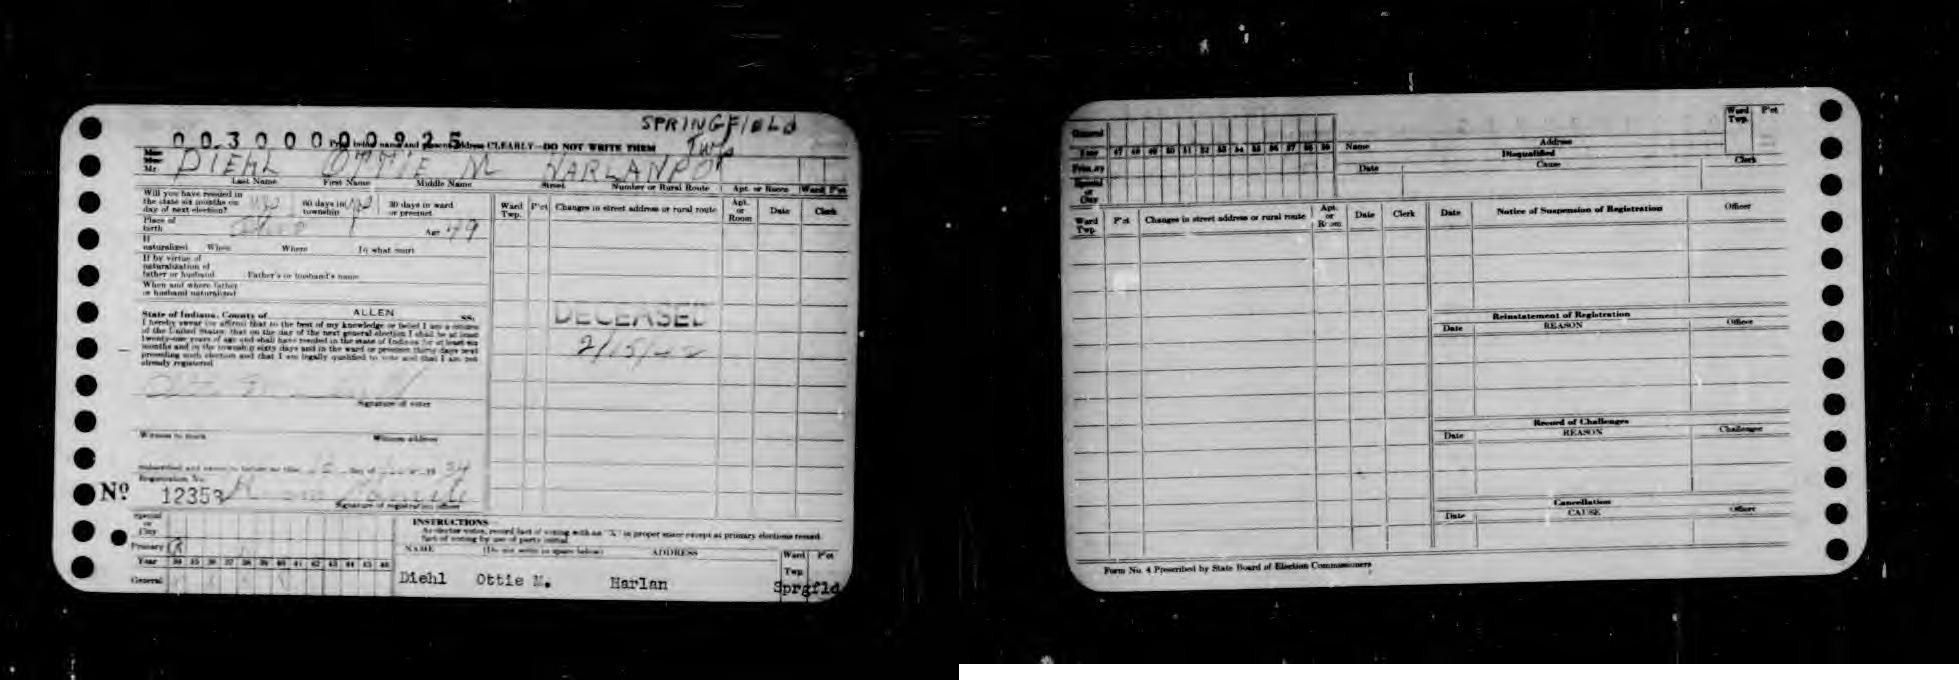 SPRINGFIELD
Twp
00300000925
Print birth name and present address CLEARLY—DO NOT WRITE THEM
Miss
Mrs.
Mr.
DIEHL OTTIE M HARLAN PO
Last Name First Name Middle Name Street Number or Rural Route Apt. or Room Ward P'ct
Will you have resided in
the state six months on
day of next election?
60 days in
township
30 days in ward
or precinct
Ward
Twp. P'ct Changes in street address or rural route Apt.
or
Room Date Clerk
Place of
birth
Age 49
If
naturalized When Where In what court
If by virtue of
naturalization of
father or husband Father's or husband's name
When and where father
or husband naturalized
State of Indiana, County of ALLEN ss:
I hereby swear (or affirm) that to the best of my knowledge or belief I am a citizen
of the United States; that on the day of the next general election I shall be at least
twenty-one years of age and shall have resided in the state of Indiana for at least six
months and in the township sixty days and in the ward or precinct thirty days next
preceding such election and that I am legally qualified to vote and that I am not
already registered
DECEASED
2/15/
Signature of voter
Witness to mark Witness address
Subscribed and sworn to before me this day of 19 34
Registration No.
No 12353
Signature of registration officer
Special
or
City
Primary R
Year 34 35 36 37 38 39 40 41 42 43 44 45 46
General
INSTRUCTIONS
As elector votes, record fact of voting with an "X" in proper space except at primary elections record
fact of voting by use of party initial
NAME (Do not write in space below) ADDRESS Ward P'ct
Twp
Diehl Ottie M. Harlan Sprgfld
General
Year 47 48 49 50 51 52 53 54 55 56 57 58 59
Primary
Special
or
City
Name Address
Ward
Twp. P'ct
Disqualified
Date Cause Clerk
Ward
Twp. P'ct Changes in street address or rural route Apt.
or
Room Date Clerk
Date Notice of Suspension of Registration Officer
Reinstatement of Registration
Date REASON Officer
Record of Challenges
Date REASON Challenger
Cancellation
Date CAUSE Officer
Form No. 4 Prescribed by State Board of Election Commissioners